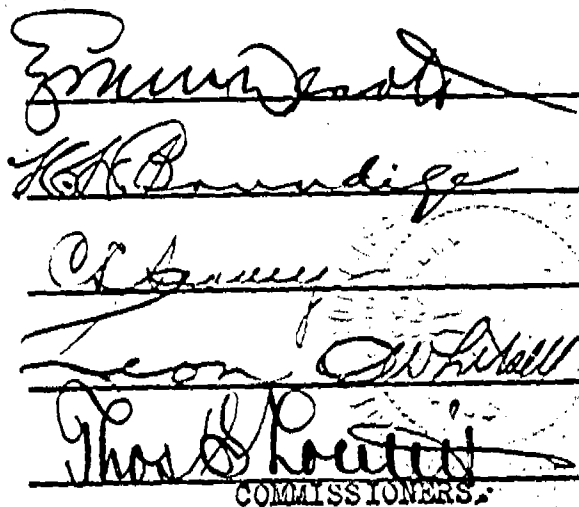 H. H. Brundige
C. Seavey
Leon O Whitsell
Thos S Louttit
COMMISSIONERS.